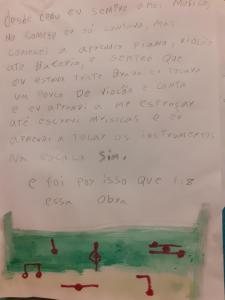 desde cedo eu sempre amei música,
no começo eu só cantava, mas
comecei a aprender piano, violão
até bateria, e sentre que
eu estava triste
um pouco de violão e canta
e eu aprendi a me esforçar
até escrevi músicas e eu
aprendi a tocar os instrumentos
na escola sim.
e foi por isso que fiz
essa obra